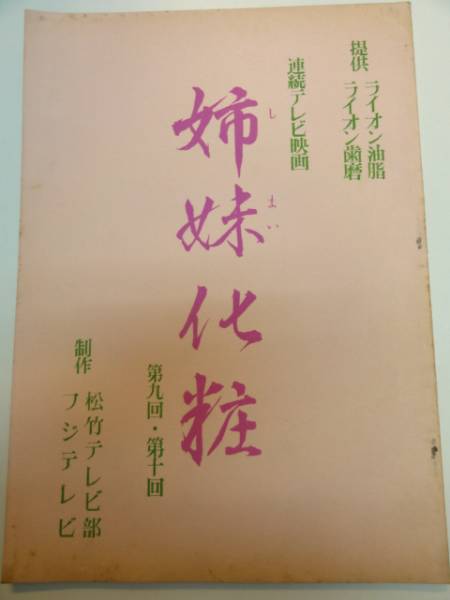 提供 ライオン油脂
ライオン歯磨
連続テレビ映画
姉妹化粧
しまい
第九回・第十回
制作 松竹テレビ部
フジテレビ